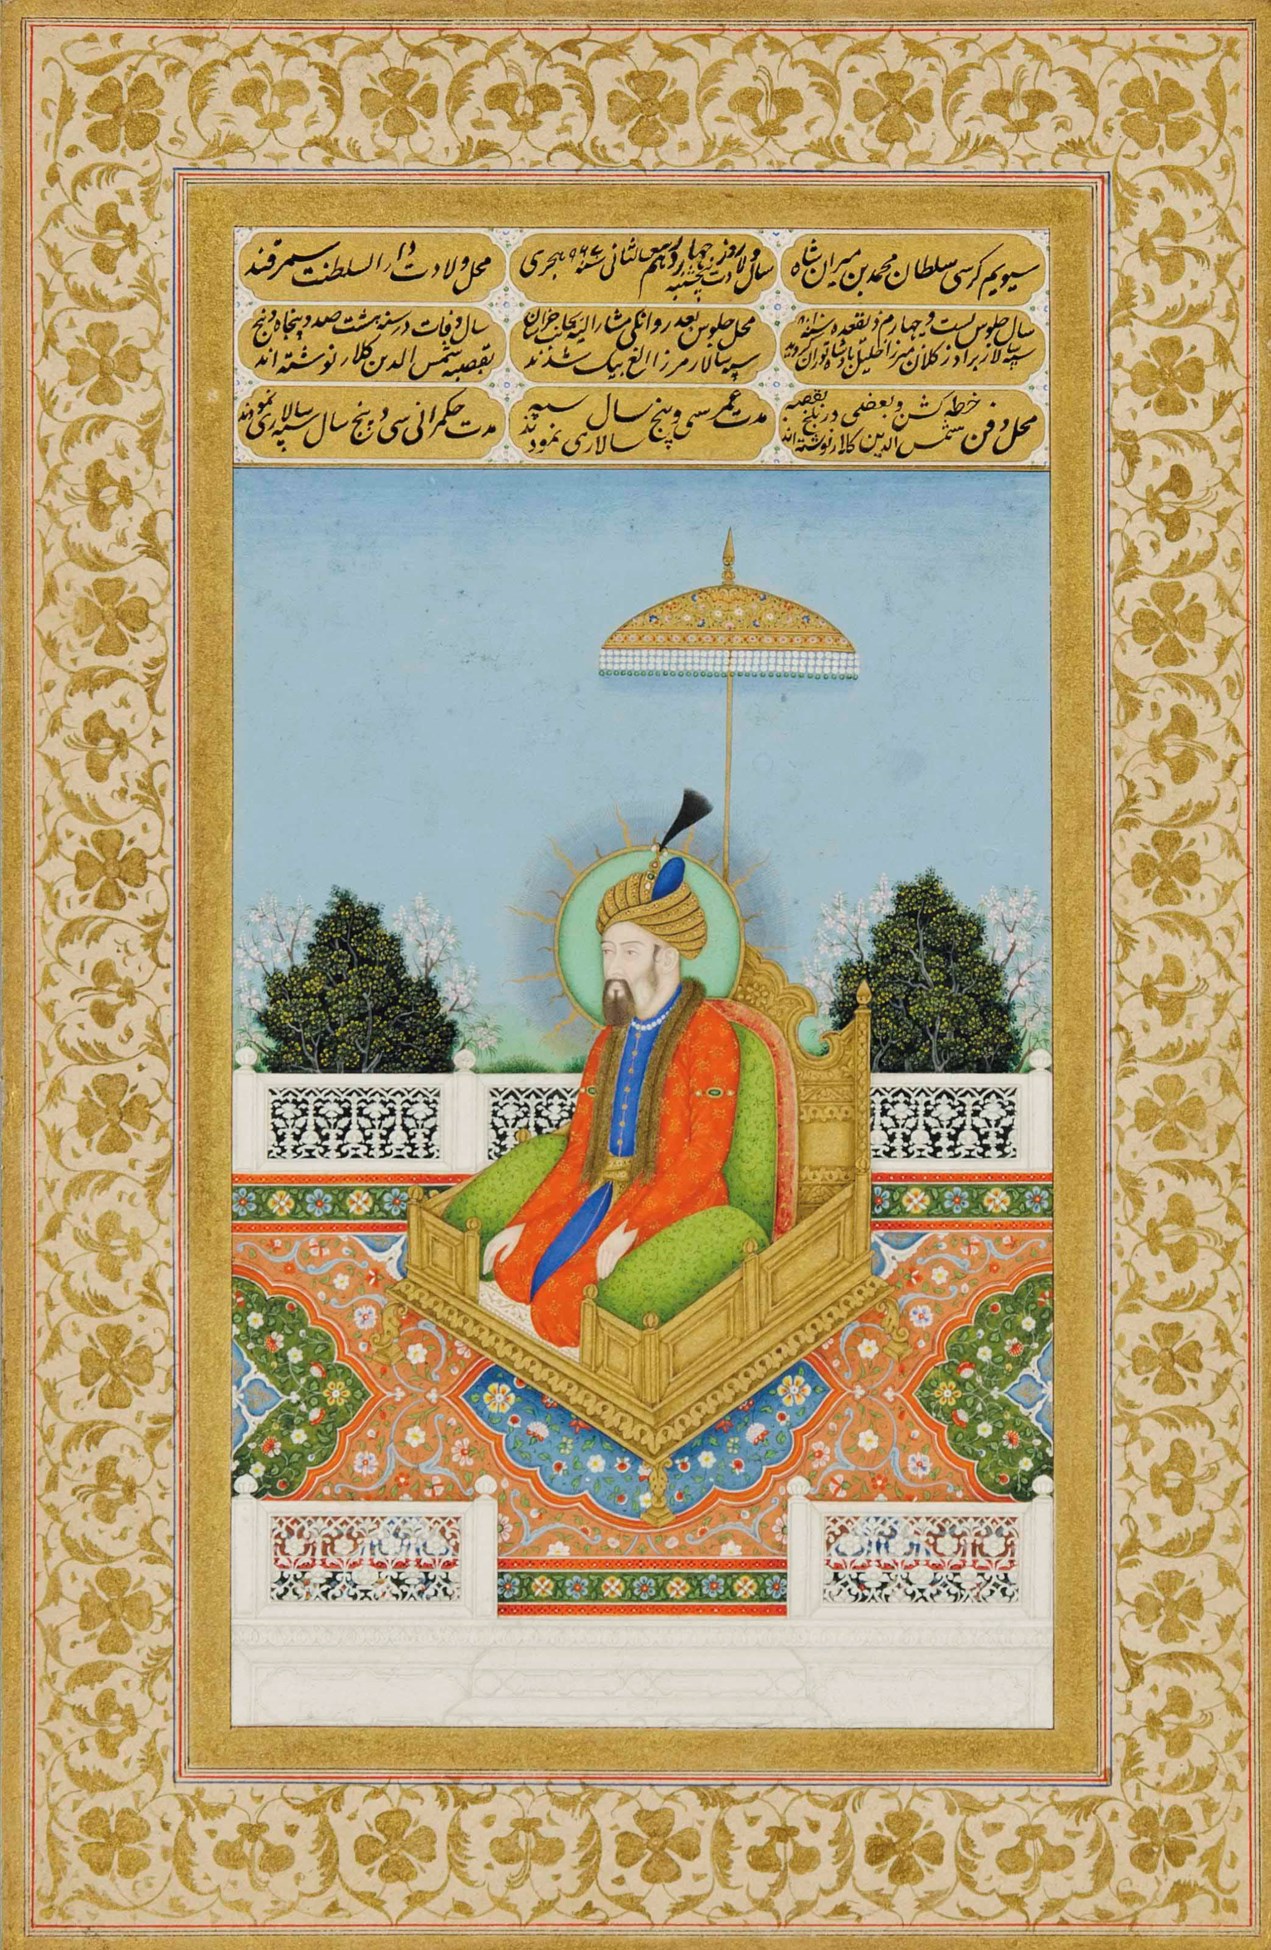 سیویم کرسی سلطان محمد بن میران شاه
سال ولادت روز پنجشبه چهاردهم ربیع الثانی سنه ۹۶۷ هجری
محل ولادت دار السلطنت سمرقند
سال جلوس بست و چهارم ذیقعده سنه
سپه لار برادر کلان میرزا خلیل بادشاه توران
محل جلوس بعد روانگی مشار الیه بجانب
سپه سالار مرزا الغ بیک شدند
سال وفات در سنه هشت صد و پنجاه و پنج
بقصبه شمس الدین کلار نوشته اند
محل دفن خطه کش و بعضی در بلخ بقصبه
شمس الدین کلار نوشته اند
مدت عمر سی و پنج سال سپه
سالاری نمودند
مدت حکمرانی سی و پنج سال سپه سالاری نمودند